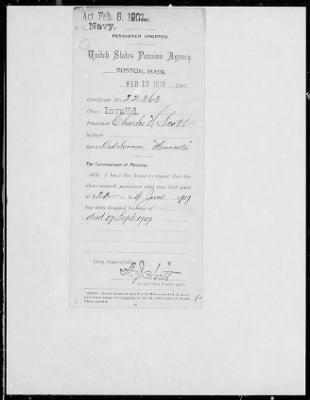 Act Feb. 6, 1907.
Navy.
PENSIONER DROPPED.
United States Pension Agency,
BOSTON, MASS.
FEB 12 1910
Certificate No. 22,363
Class Invalid.
Pensioner Charles H. Scott
Soldier
Service Ord. Seaman "Minnesota"
The Commissioner of Pensions.
SIR: I have the honor to report that the
above-named pensioner who was last paid
at $20 to 4 June, 1909
has been dropped because of
death 19 Sept 1909.
Very respectfully,
United States Pension Agent.